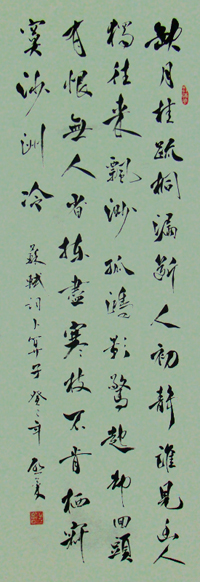 缺月挂疏桐漏斷人初靜誰見幽人
獨往来飄渺孤鴻影驚起却回頭
有恨無人省揀盡寒枝不肯栖寂
寞沙洲冷
蘇軾詞卜算子